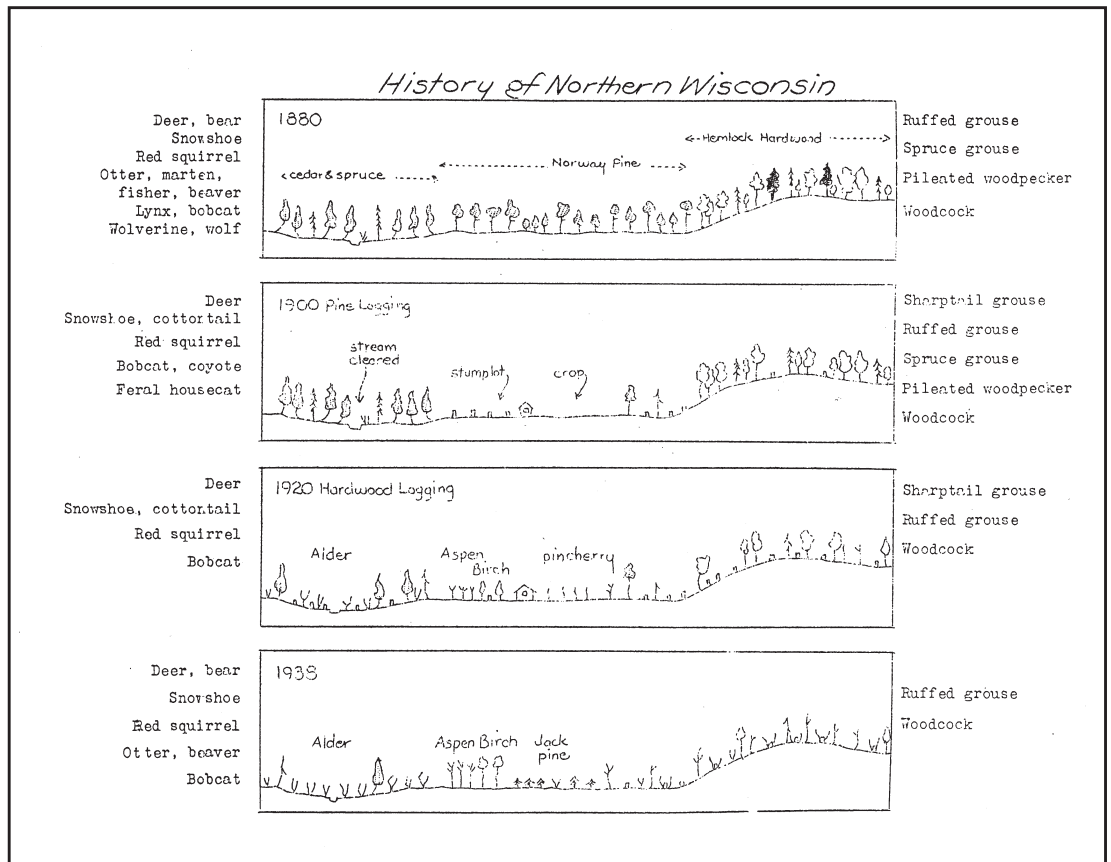 History of Northern Wisconsin
Deer, bear
Snowshoe
Red squirrel
Otter, marten,
fisher, beaver
Lynx, bobcat
Wolverine, wolf
1880
<cedar & spruce ------>
<------ Norway Pine ----->
<--Hemlock Hardwood ------->
Ruffed grouse
Spruce grouse
Pileated woodpecker
Woodcock
Deer
Snowshoe, cottontail
Red squirrel
Bobcat, coyote
Feral housecat
1900 Pine Logging
stream
cleared
stumplot
crop
Sharptail grouse
Ruffed grouse
Spruce grouse
Pileated woodpecker
Woodcock
Deer
Snowshoe, cottontail
Red squirrel
Bobcat
1920 Hardwood Logging
Alder
Aspen
Birch
pincherry
Sharptail grouse
Ruffed grouse
Woodcock
Deer, bear
Snowshoe
Red squirrel
Otter, beaver
Bobcat
1938
Alder
Aspen Birch
Jack
pine
Ruffed grouse
Woodcock